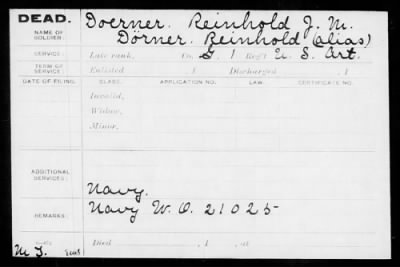 DEAD. Doerner. Reinhold J. M.
NAME OF SOLDIER: Dörner. Reinhold (alias)
SERVICE: Late rank, Co. G. 1 Reg't U. S. Art.
TERM OF SERVICE: Enlisted , 1 Discharged , 1
DATE OF FILING. CLASS. APPLICATION NO. LAW. CERTIFICATE NO.
Invalid,
Widow,
Minor,
ADDITIONAL SERVICES: Navy.
REMARKS: Navy W. O. 21025
Died , 1 , at